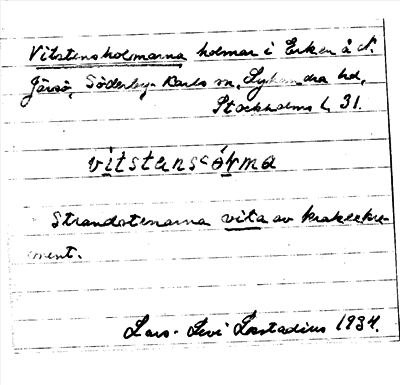 Vitstensholmarna holmar i Erken å N.
Järsö, Söderby-Karls sn, Lyhundra hd,
Stockholms l. 31.
vitstensɔ́ɫma
Strandstenarna vita av kråkexkre-
ment.
Lars-Levi Læstadius 1934.